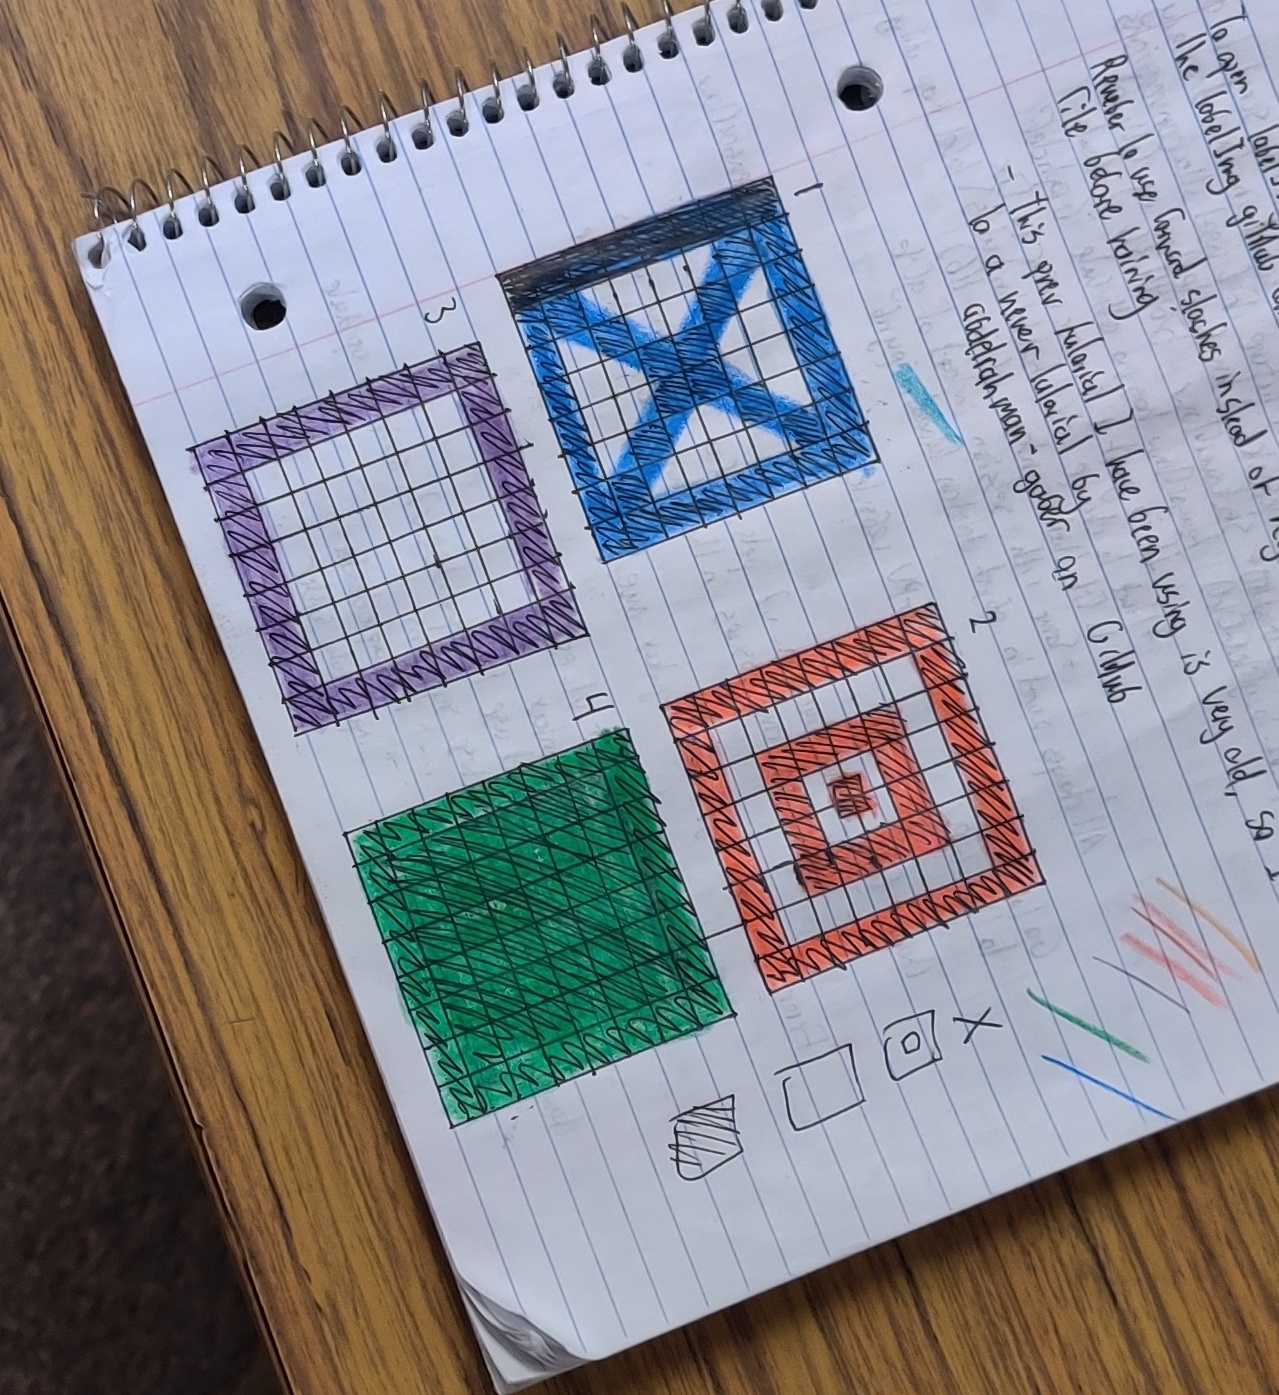 To open labels
the labelImg github
Remeber to use forward slashes instead of
file before training
- This prev tutorial I have been using is very old, so I
to a newer tutorial by
abdelrahman-gaber on GitHub
1
2
3
4